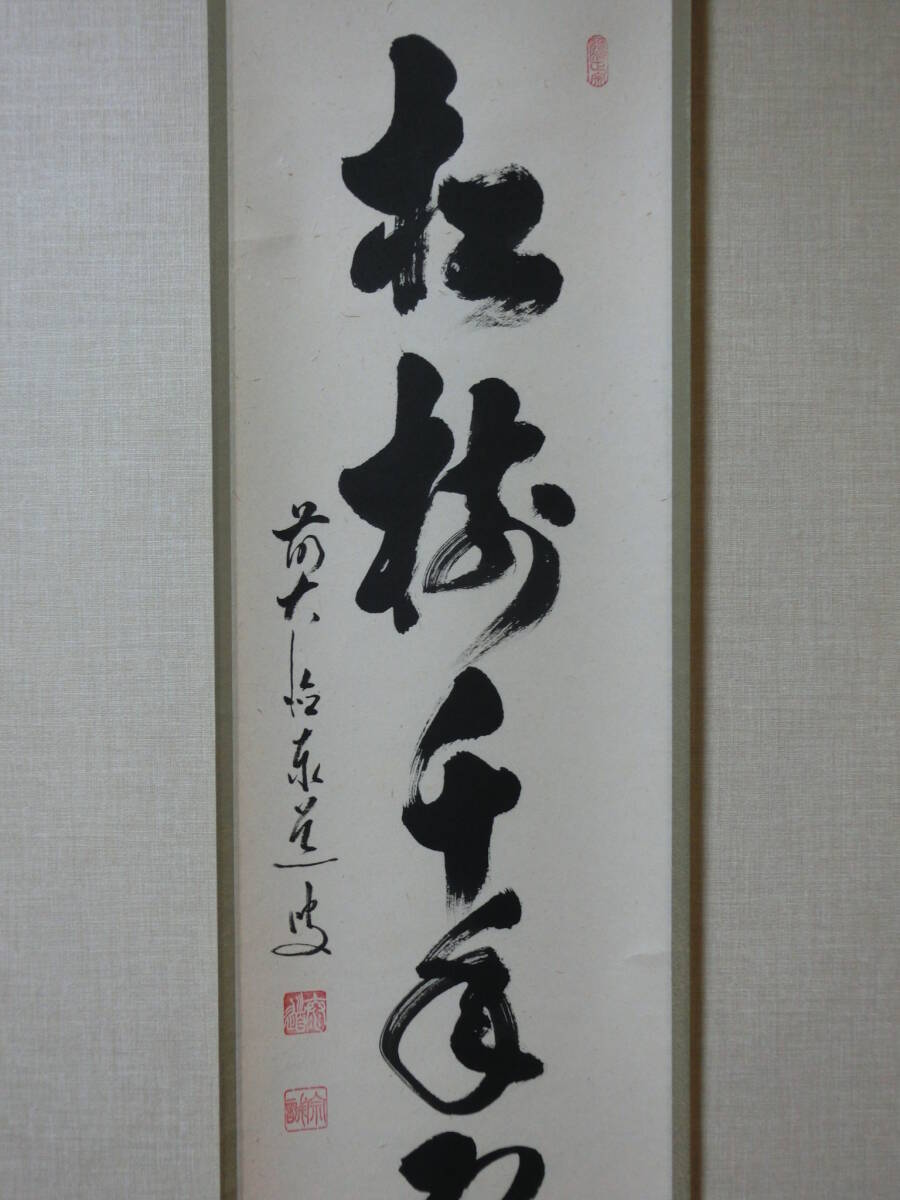 松樹千年
前大徳泰道叟